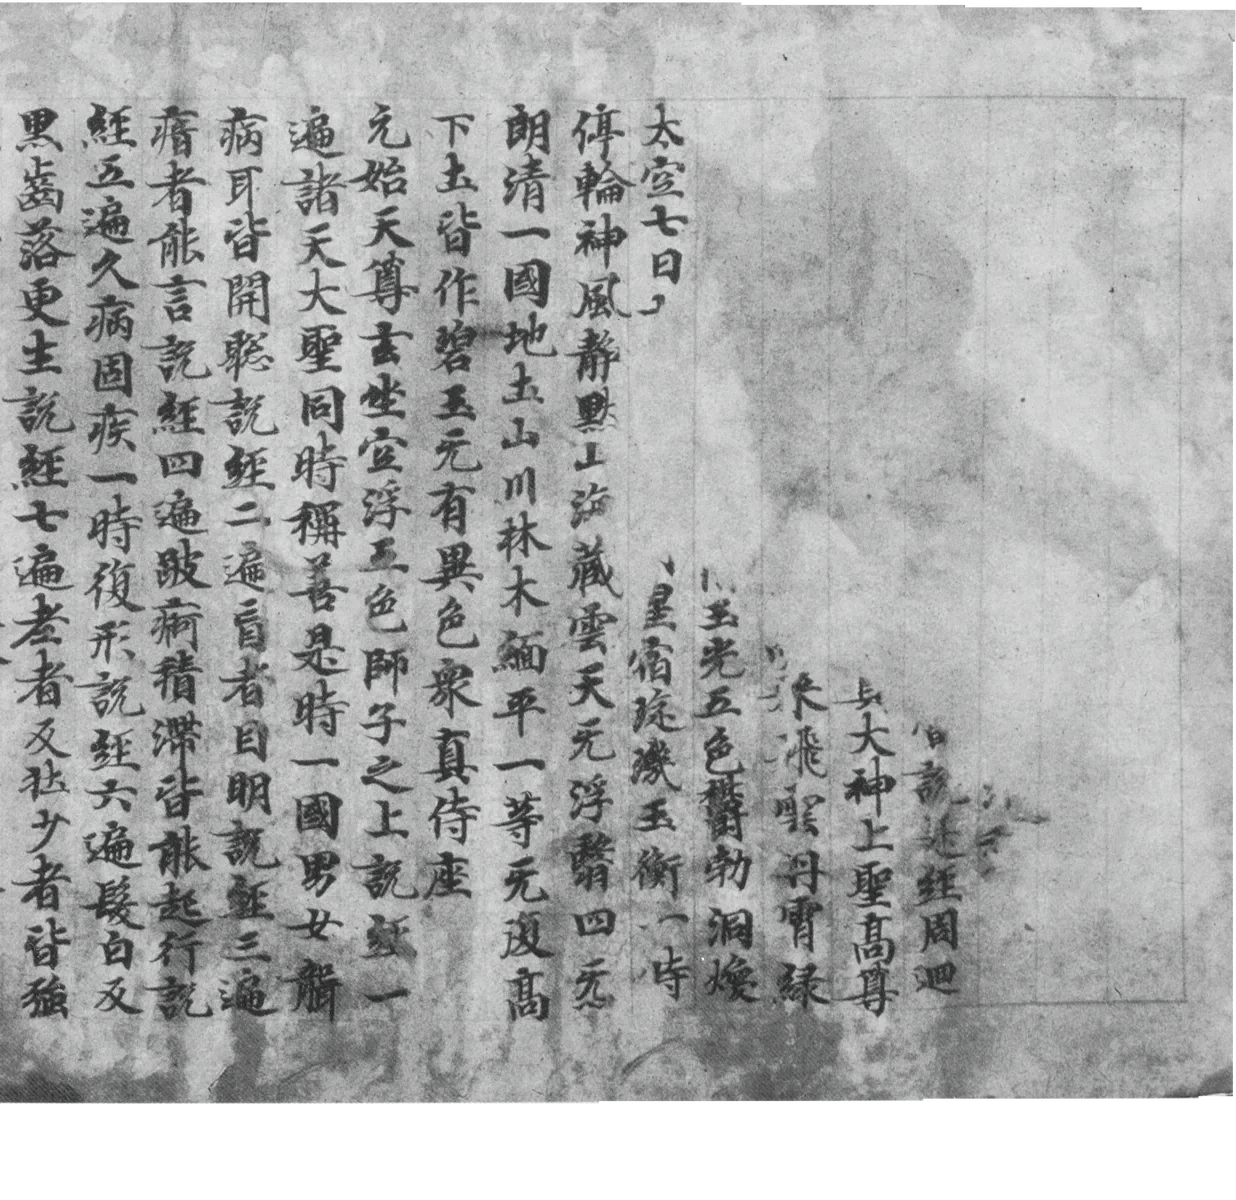 說經周迴
大神上聖高尊
乘飛雲丹霄緑
玉光五色鬱勃洞煥
太空七日星宿琁璣玉衡一時
停輪神風靜默山海藏雲天无浮翳四
朗清一國地土山川林木緬平一等无復高
下土皆作碧玉无有異色衆真侍座
元始天尊玄坐空浮五色師子之上說經一
遍諸天大聖同時稱善是時一國男女聾
病耳皆開聡說經二遍盲者目明說經三遍
瘖者能言說經四遍跛痾積滯皆能起行說
經五遍久病固疾一時復形說經六遍髮白反
黑齒落更生說經七遍老者反壯少者皆強